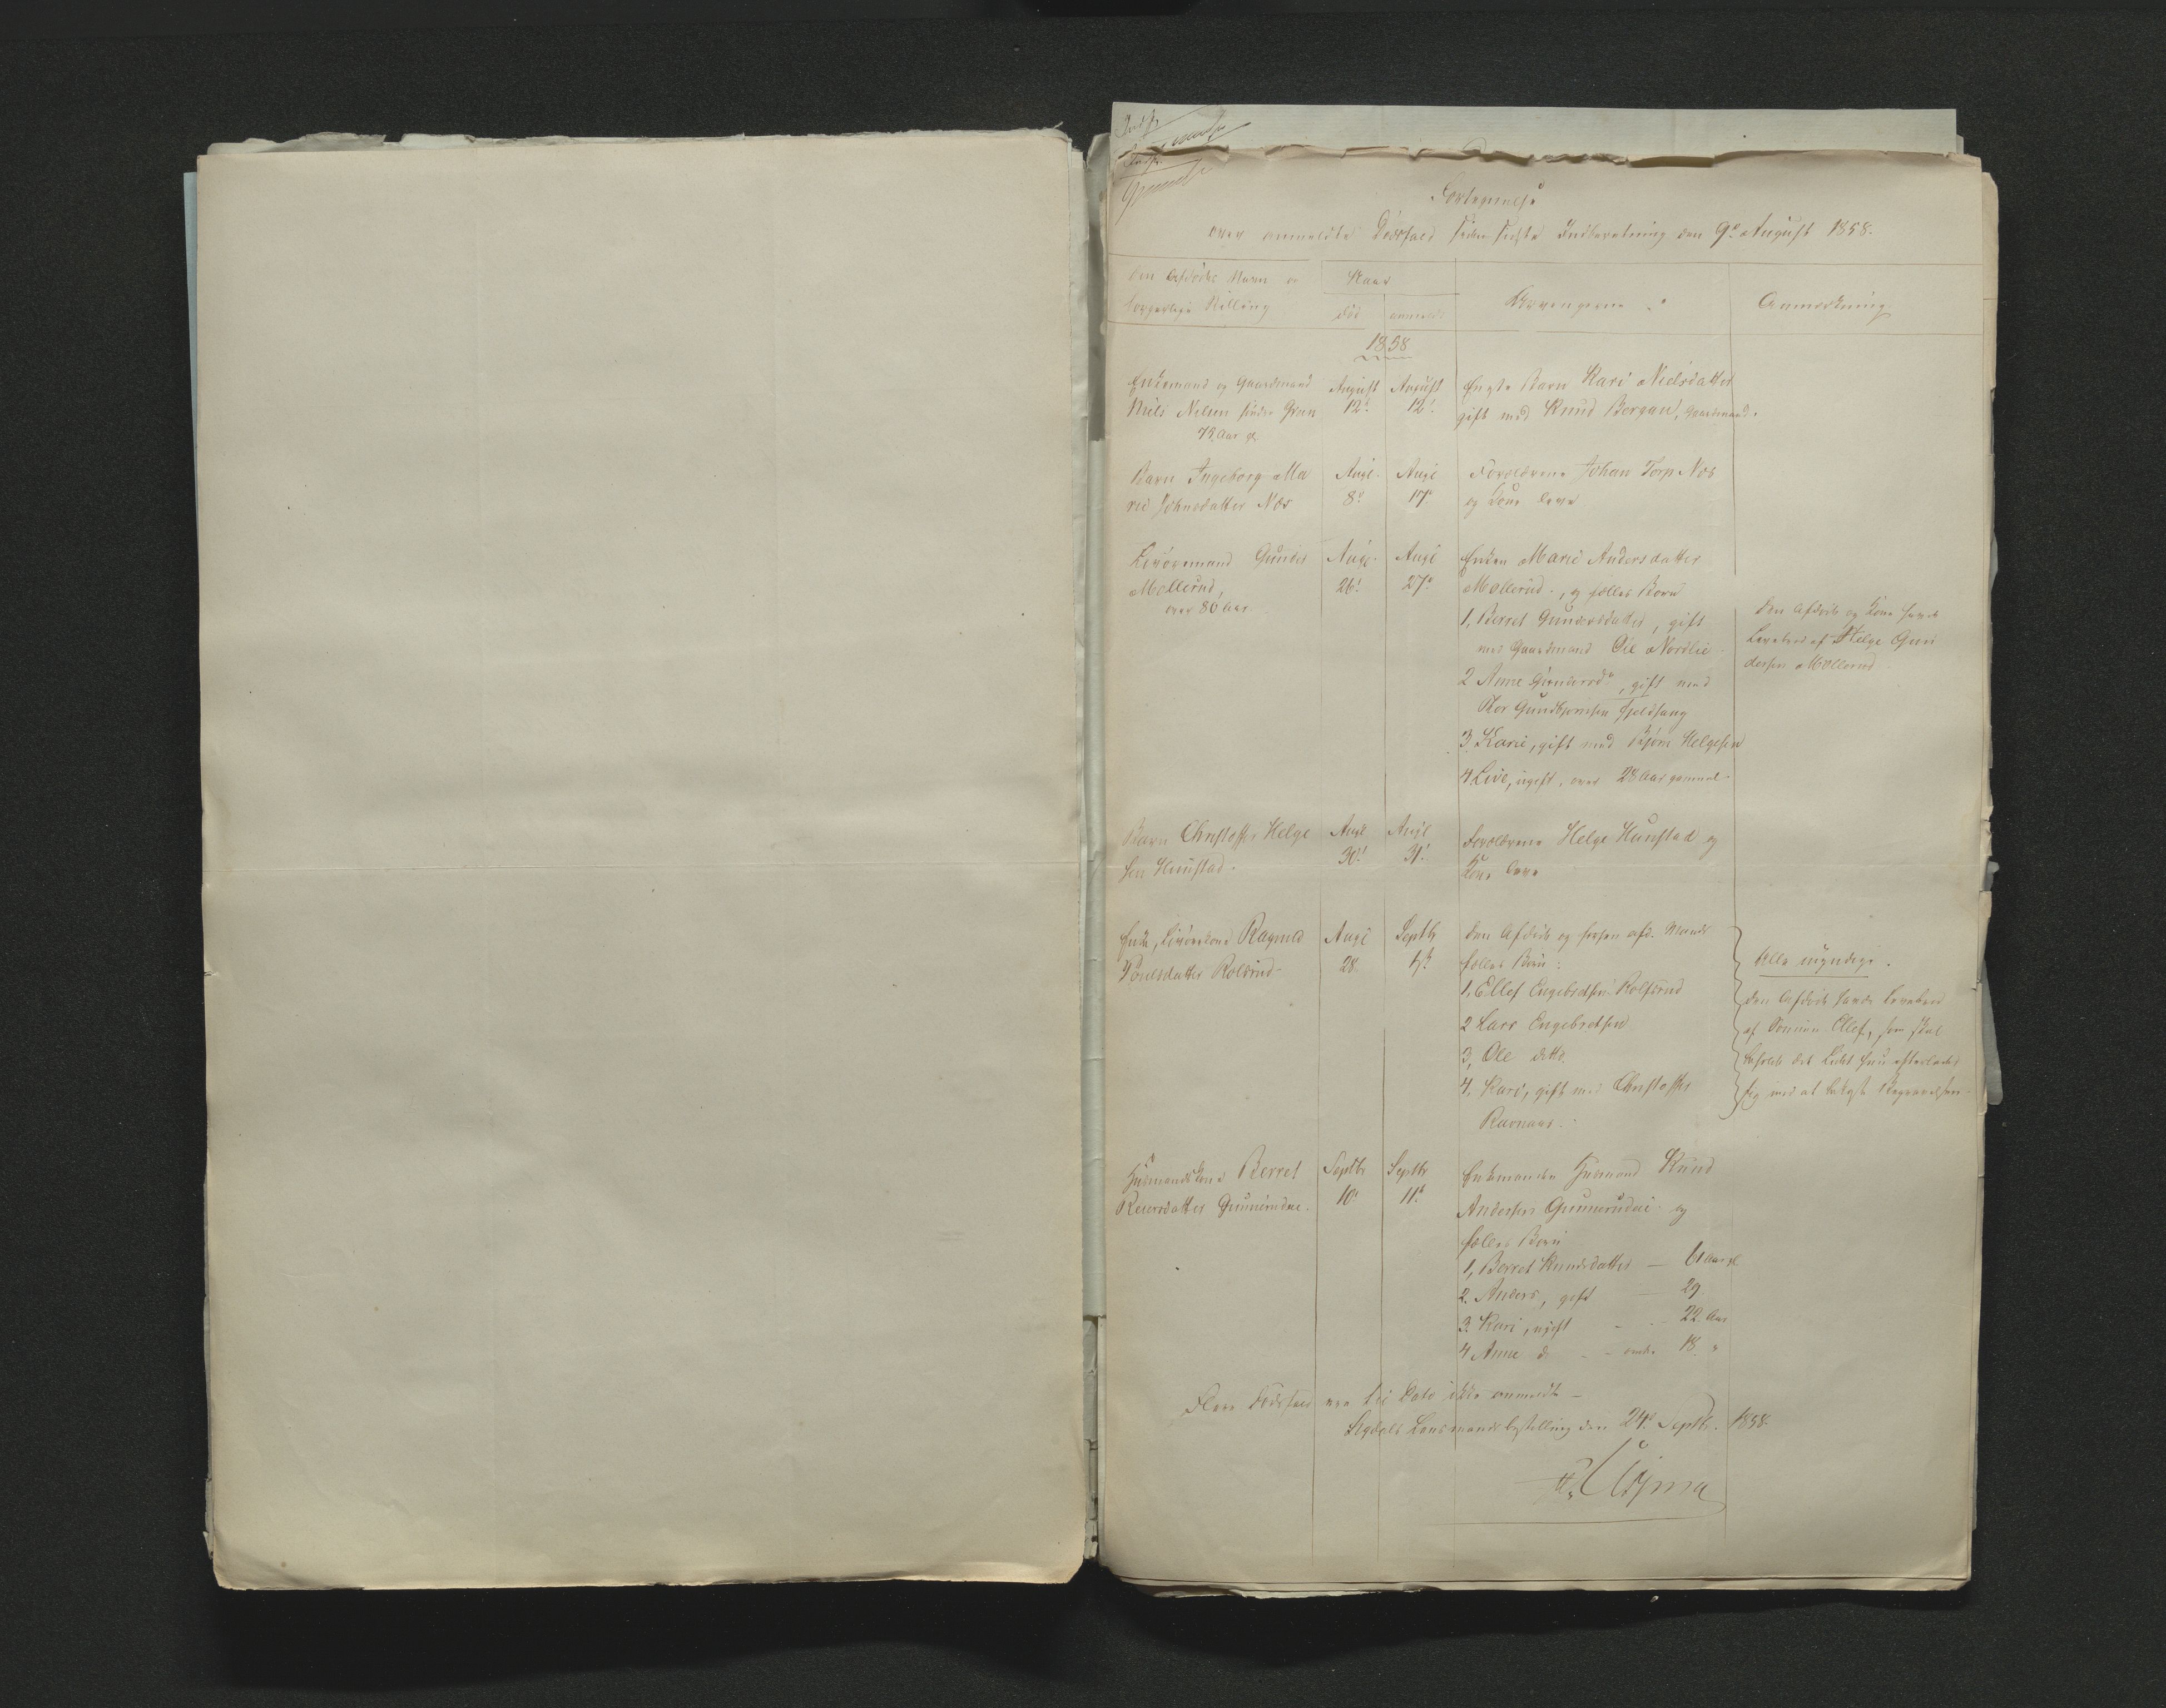 Fortegnelse
over anmeldte Dødsfald siden sidste Indberetning den 9de August 1858.
Den Afdødes Navn og
borgerlige Stilling
Naar
død
anmeldt
Arvingerne
Anmærkning
1858
Enkemand og Gaardmand
Niels Nilsen søndre Gren
75 Aar gl.
August
12te
August
12te
Eneste Barn Kari Nielsdatter
gift med Knud Bergan, Gaardmand.
Barn Ingeborg Ma
rie Johnsdatter Næs
Augt
8de
Augt
17de
Forældrene Johan Torp Næs
og Kone lever
Livøremand Gunder
Møllerud,
over 80 Aar
Augt
26de
Augt
27de
Enken Marie Andersdatter
Møllerud, og fælles Børn
1, Berret Gundersdatter, gift
med Gaardmand Ole Nordlie
2 Anne Gundersdr, gift med
Thor Gundbjørnsen Fjeldhaug
3, Karie, gift med Bjørn Helgesen
4 Live, ugift, over 28 Aar gammel
Den Afdøde og Kone havde
Levebrød af Helge Gun
dersen Møllerud
Barn Christoffer Helge
sen Hunstad.
Augt
30te
Augt
31te
Forældrene Helge Hunstad og
Kone lever
Enke, Livørekone Ragnild
Poulsdatter Rolsrud
Augt
28
Septbr
Den Afdøde og hendes afd. Mands
fælles Børn:
1, Ellef Engebretsen Rolfsrud
2 Lars Engebretsen
3, Ole ditto
4, Kari, gift med Christoffer
Ravnaas.
Alle myndige.
Den Afdøde havde Levebrød
af Sønnen Ellef, som skal
beholde det Lidet hun efterlader
sig mod at bekoste Begravelsen
Husmandskone Berret
Reiersdatter Gunnerudeie.
Septbr
10de
Septbr
11te
Enkemanden Husmand Knud
Andersen Gunnerudeie og
fælles Børn
1, Berret Knudsdatter — 61 Aar gl
2. Anders, gift — 29
3. Kari, ugift - 22 Aar
4 Anne do - - under 18 "
Flere Dødsfald ere til Dato ikke anmeldte —
Sigdals Lensmandsbestilling den 24de Septbr. 1858.